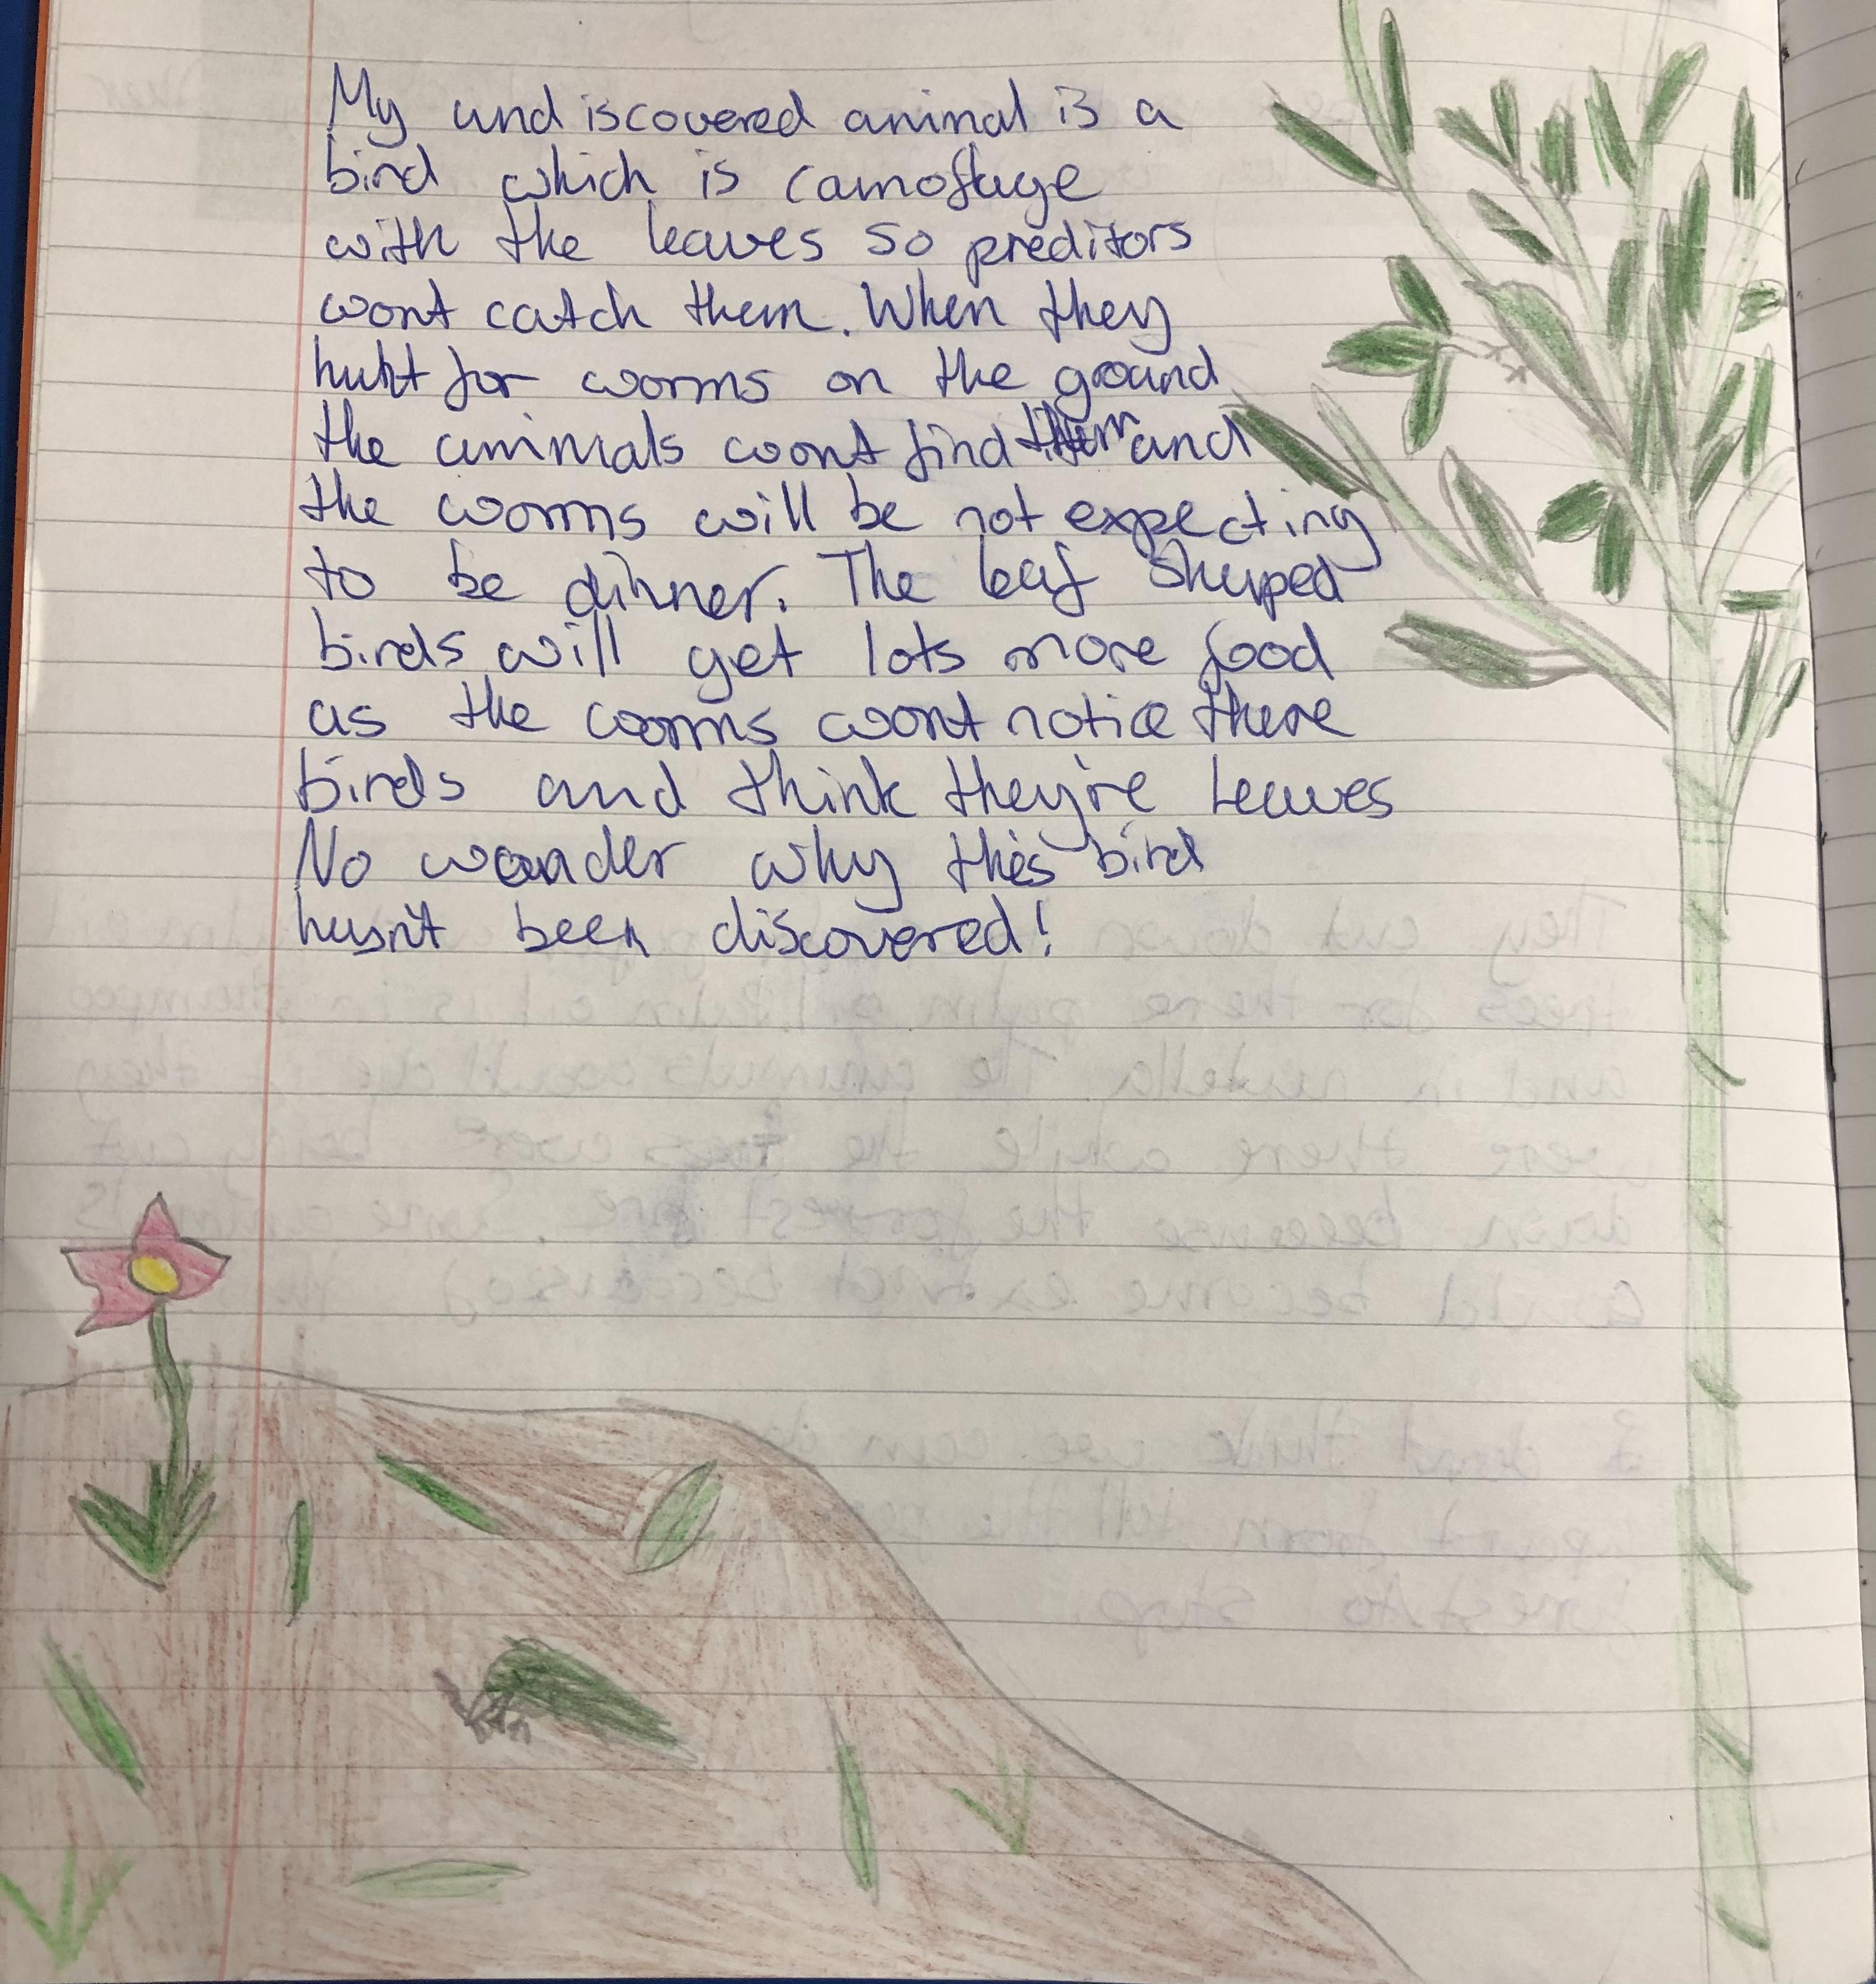 My undiscovered animal is a
bird which is camoflage
with the leaves so preditors
wont catch them. When they
hunt for worms on the ground
the animals woont find them and
the worms will be not expecting
to be dinner. The leaf shaped
birds will get lots more food
as the worms woont notice there
birds and think they're leaves
No wonder why this bird
hasn't been discovered!